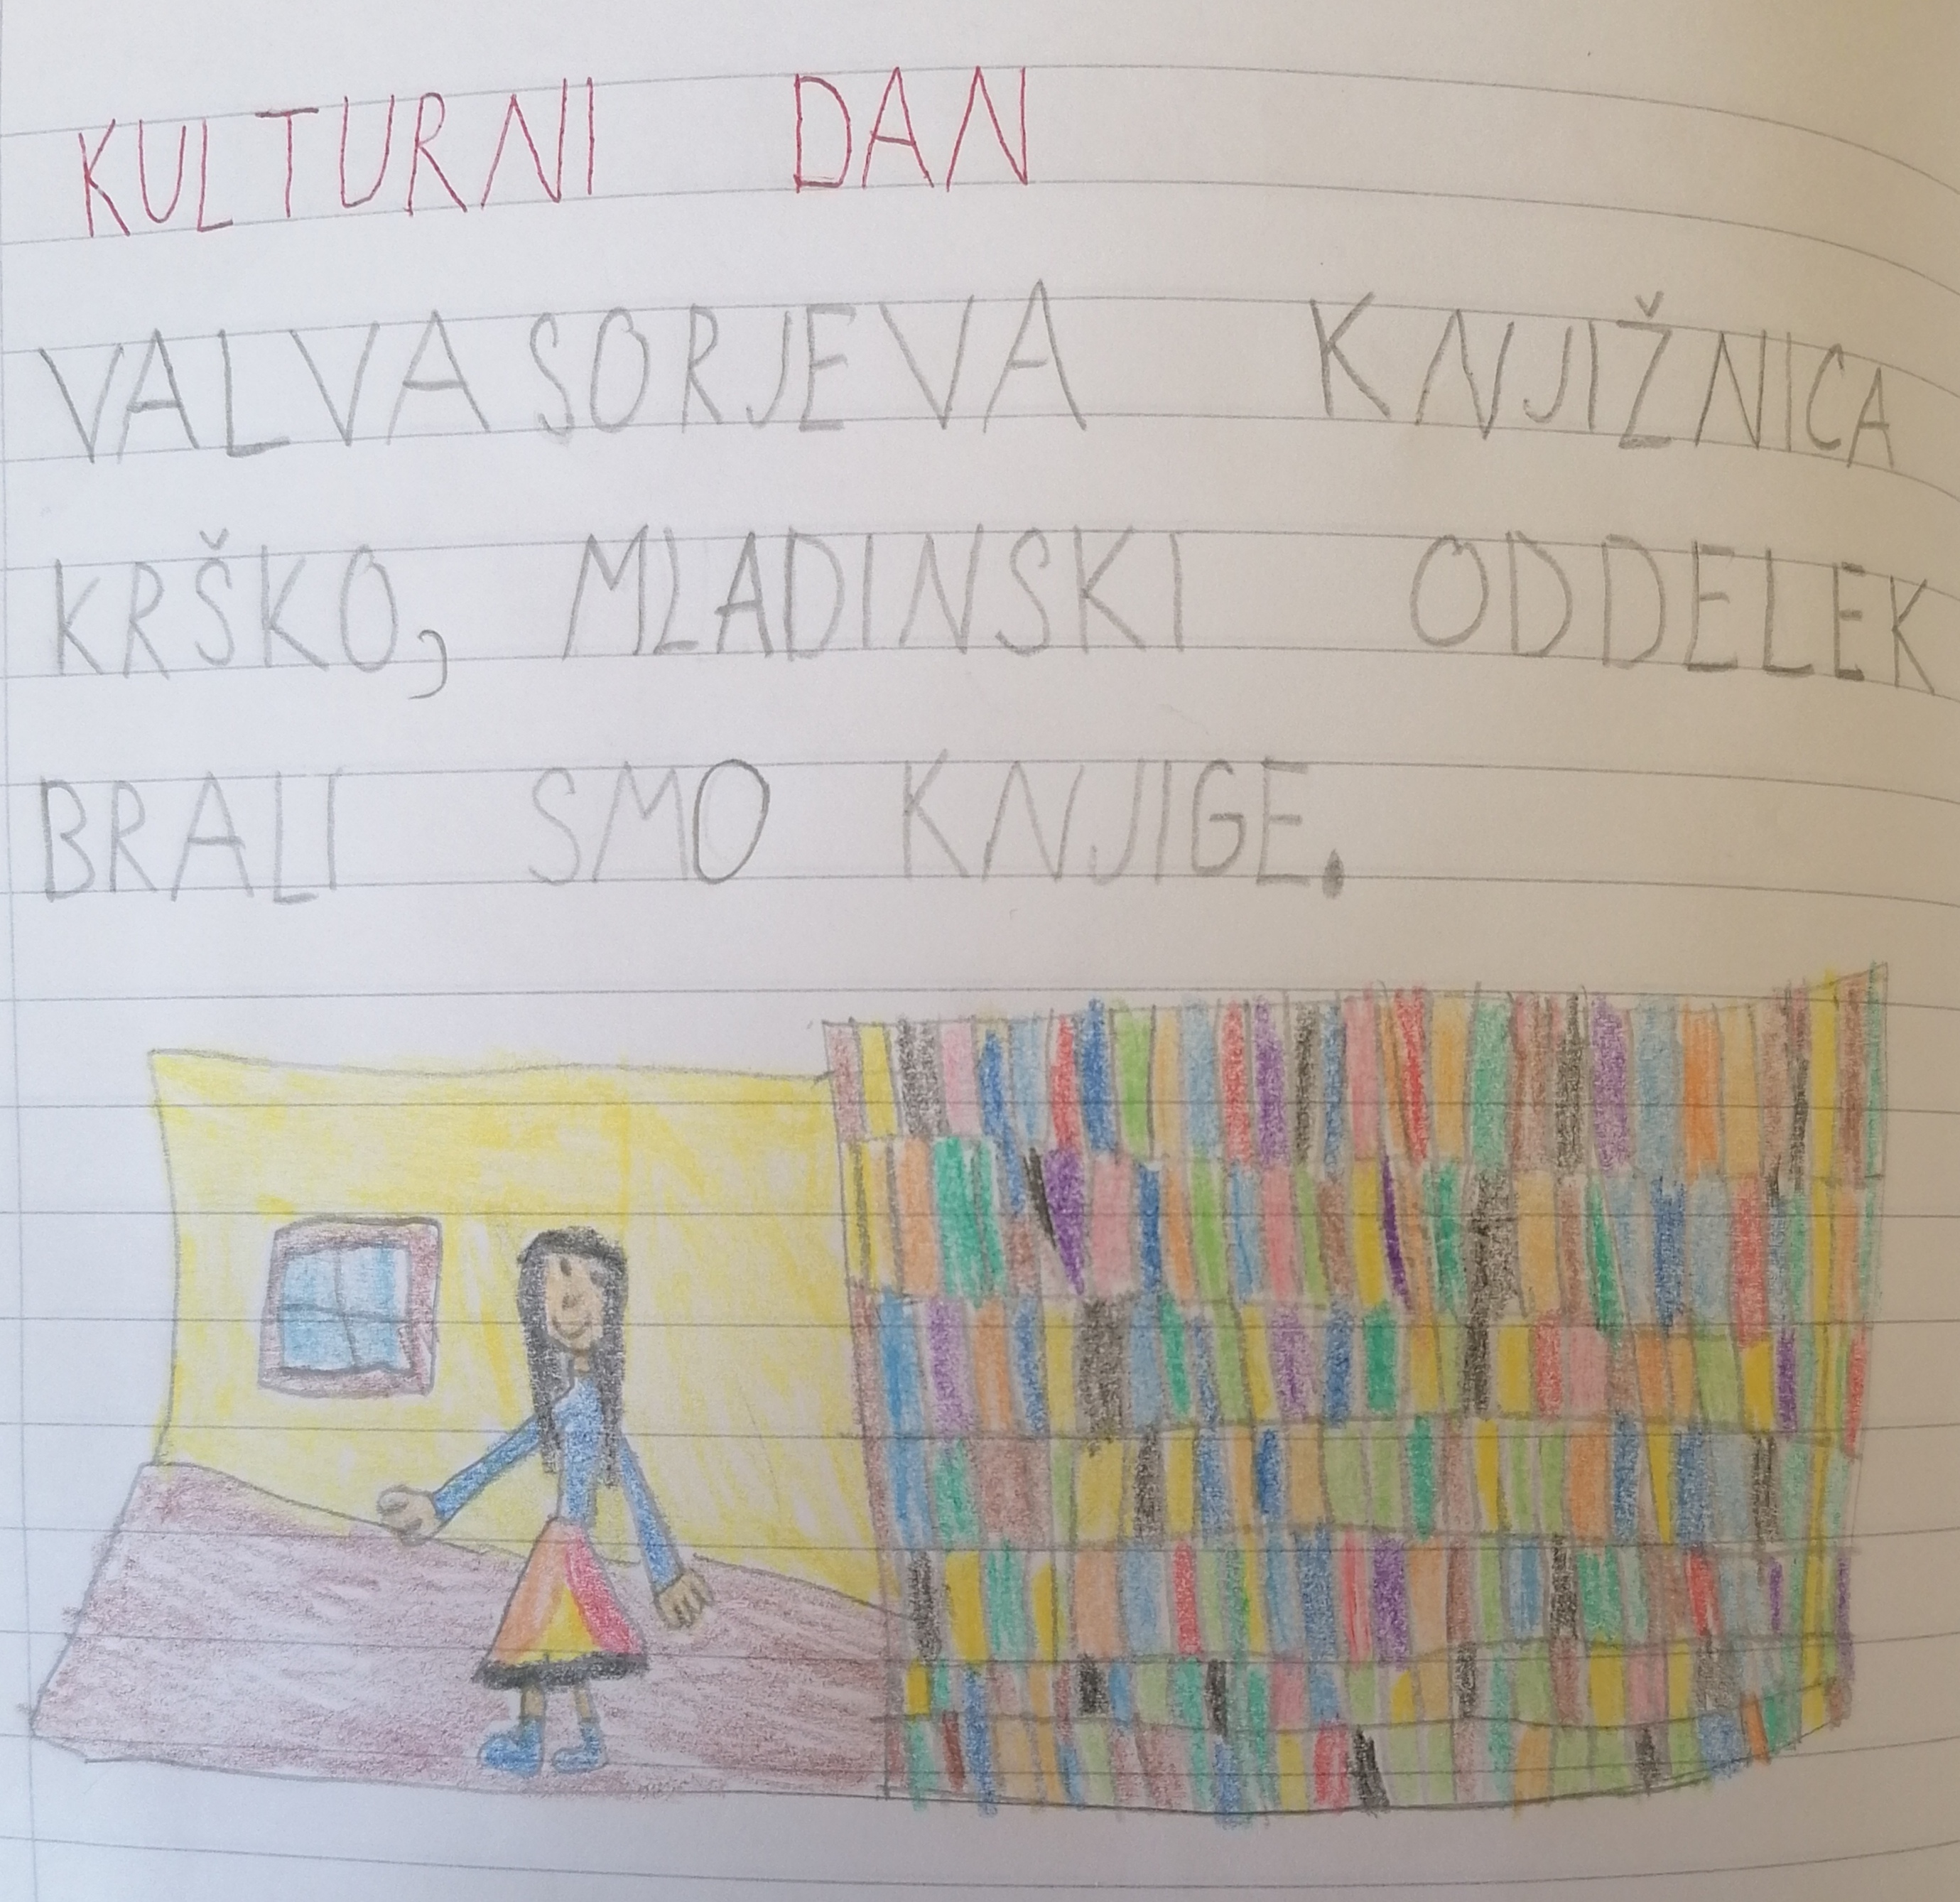 KULTURNI DAN
VALVASORJEVA KNJIŽNICA
KRŠKO, MLADINSKI ODDELEK
BRALI SMO KNJIGE.